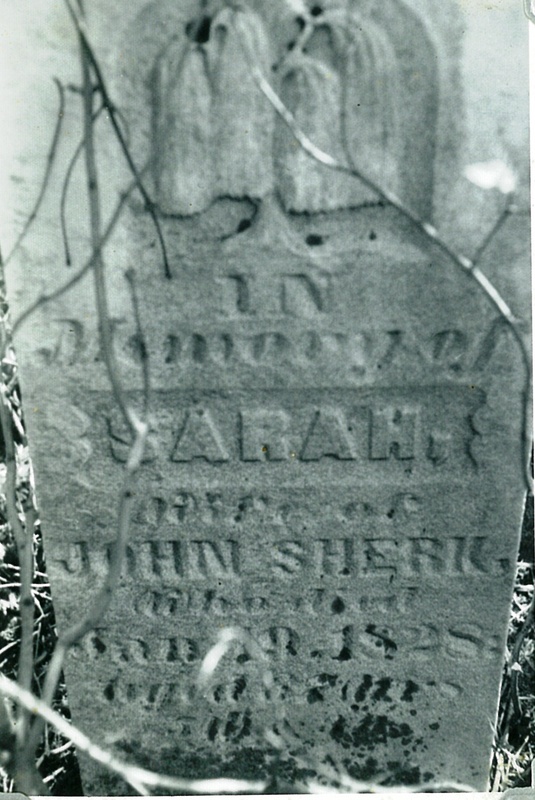 IN
Memory of
SARAH,
Wife of
JOHN SHERK,
Who died
Jan 1828;
aged years